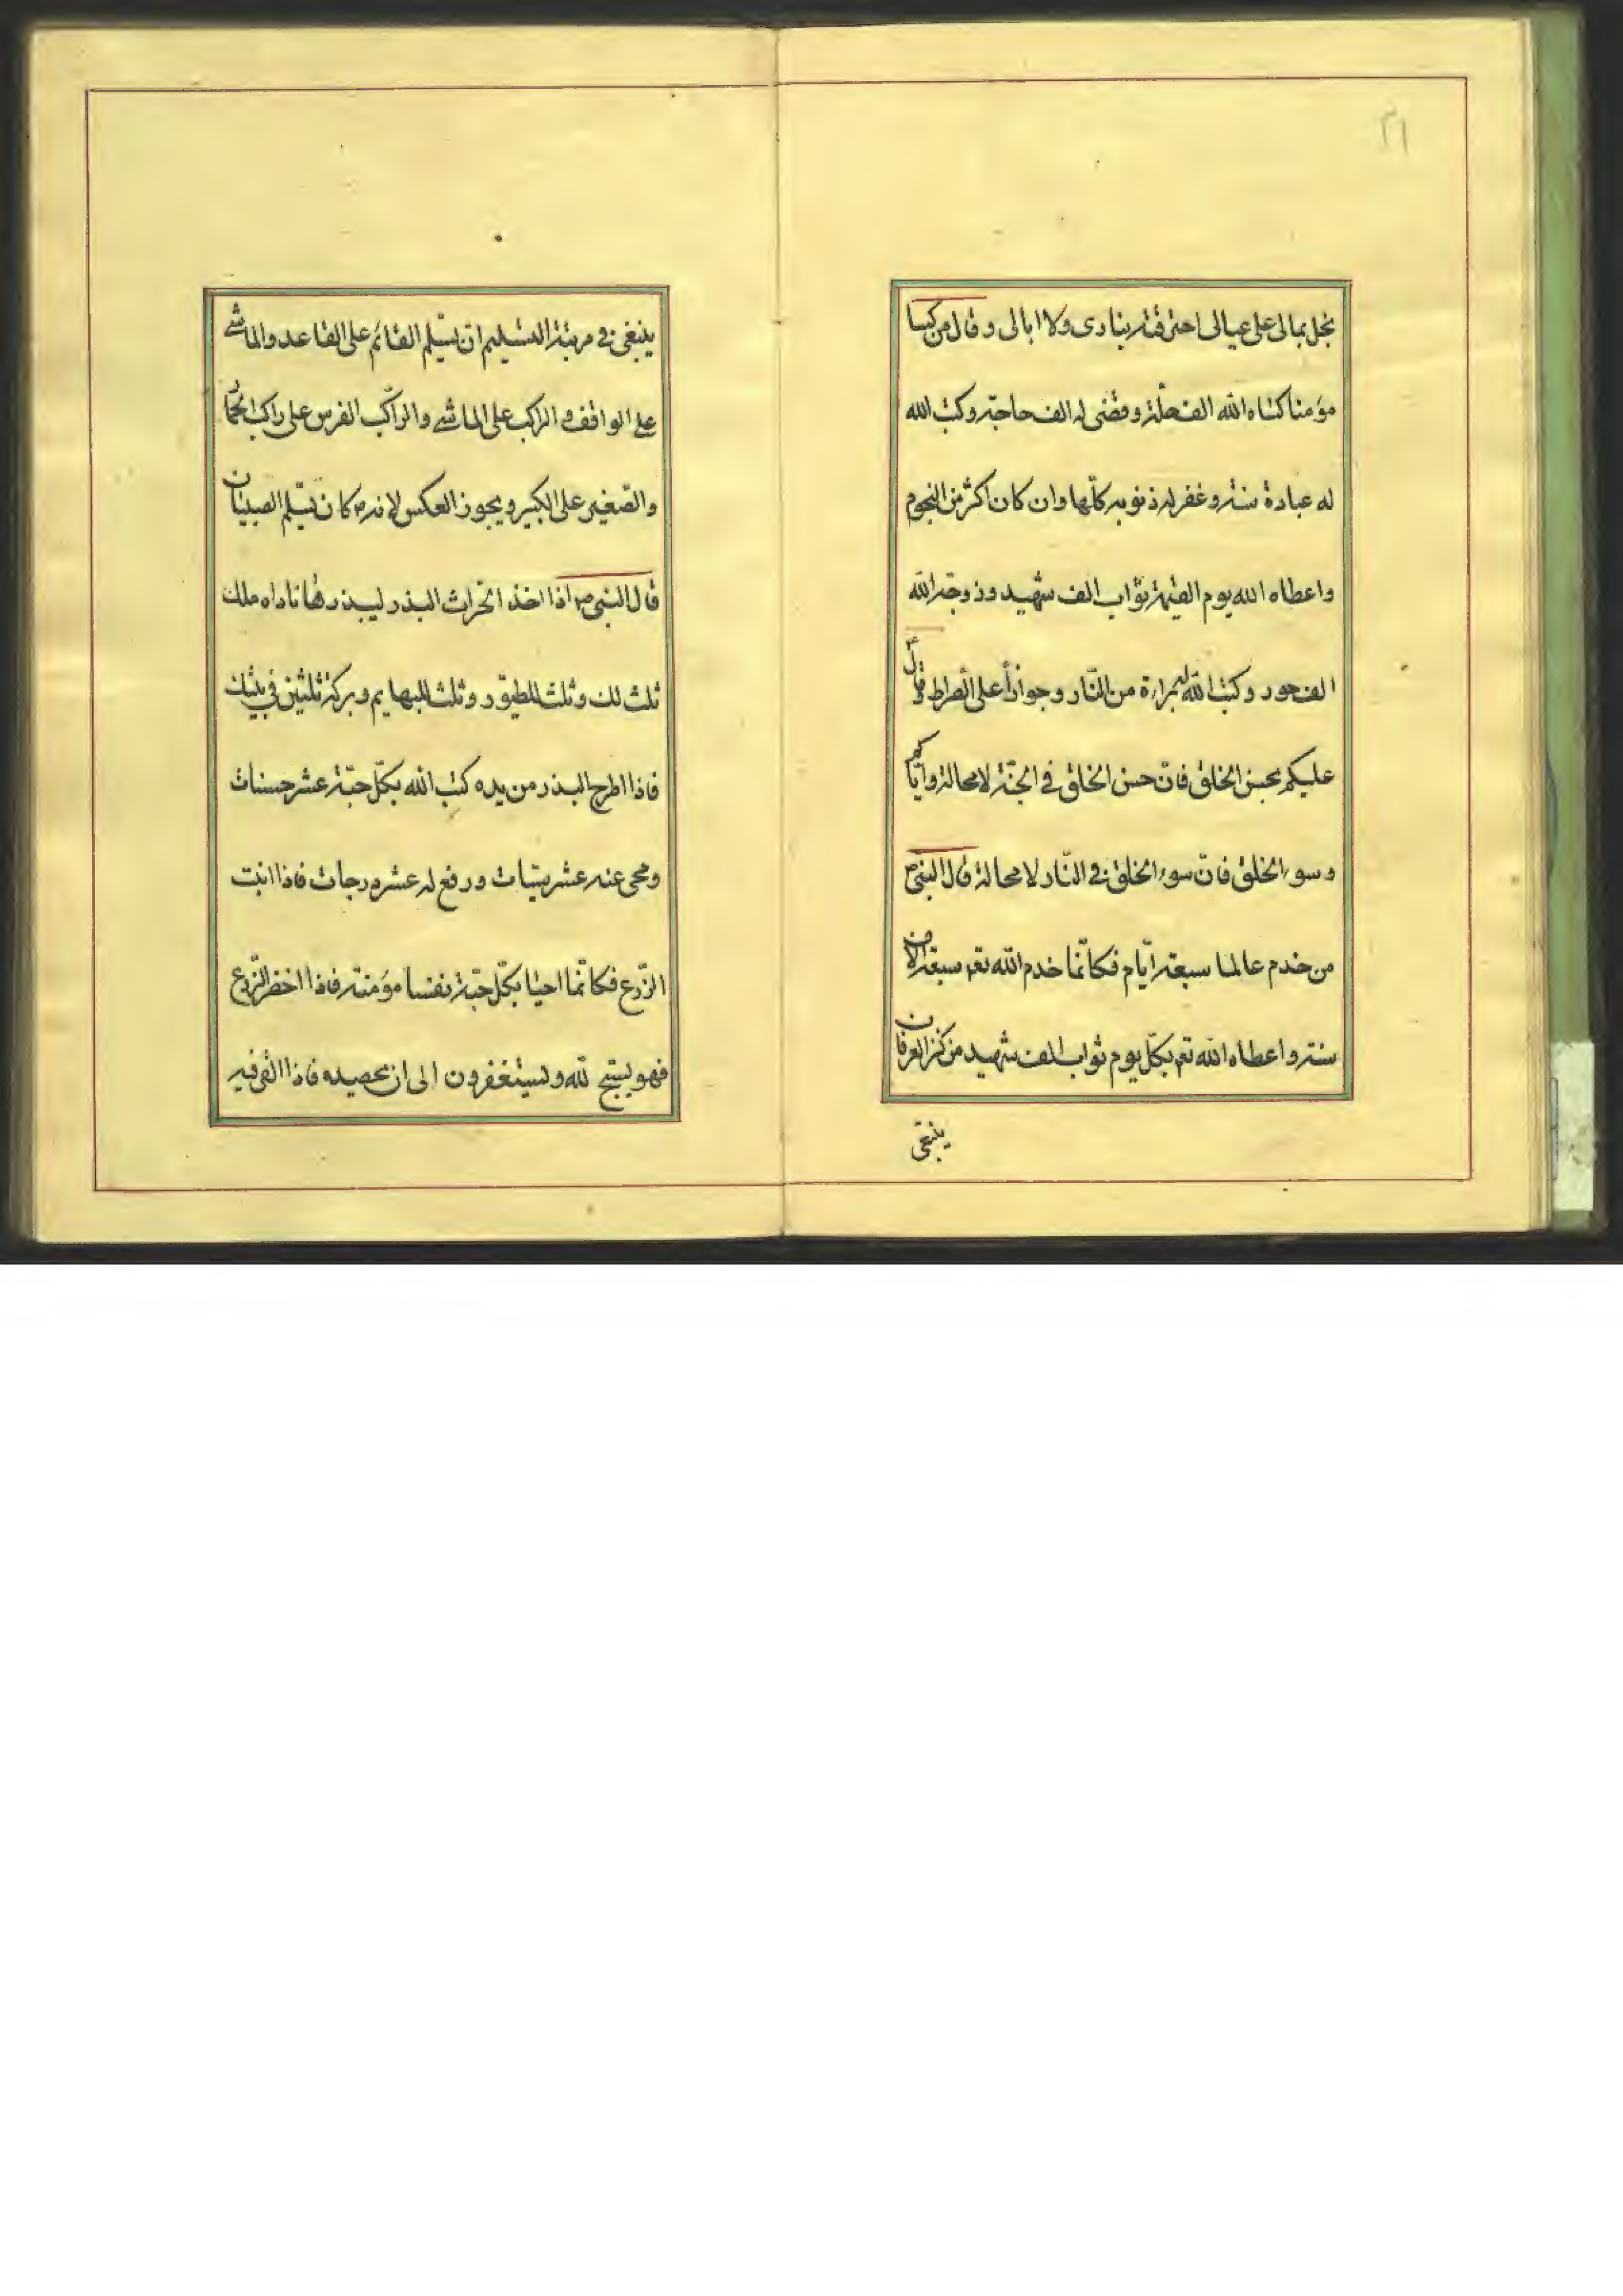 ٣١
بخل بمالى على عيالى احترقته بنارى ولا ابالى وقال من كسا
مؤمنا كساه الله الف حلة وقضى له الف حاجة وكتب الله
له عبادة سنة وغفر له ذنوبه كلّها وان كان اكثر من النجوم
واعطاه الله يوم القيمة ثواب الف شهيد وزوجه الله
الف حور وكتب الله له براءة من النّار وجوازاً على الصراط قال
عليكم بحسن الخلق فانّ حسن الخلق فى الجنّة لا محالة وايّاكم
وسوء الخلق فانّ سوء الخلق فى النّار لا محالة قال النبىّ ص
من خدم عالما سبعة ايّام فكانّما خدم الله تعم سبعة الاف
سنة واعطاه الله تعم بكلّ يوم ثواب الف شهيد من كنز العرفان
ينبغى
ينبغى فى مرتبة التسليم ان يسّلم القائم على القاعد والماشى
على الواقف والراكب على الماشى والراكب الفرس على راكب الحمار
والصّغير على الكبير ويجوز العكس لانه ص كان يسّلم الصبيان
قال النبى ص اذا اخذ الحراث البذر ليبذرها ناداه ملك
ثلث لك وثلث للطيور وثلث للبهايم وبركة ثلثين فى بيتك
فاذا اطرح البذر من يده كتب الله بكلّ حبّة عشر حسنات
ومحى عنه عشر سيّات ورفع له عشر درجات فاذا انبت
الزّرع فكانّما احيا بكلّ حبّة نفسا مؤمنة فاذا اخضر الزّرع
فهو يسبّح لله ويستغفرون الى ان يحصيده فاذا القى فيه